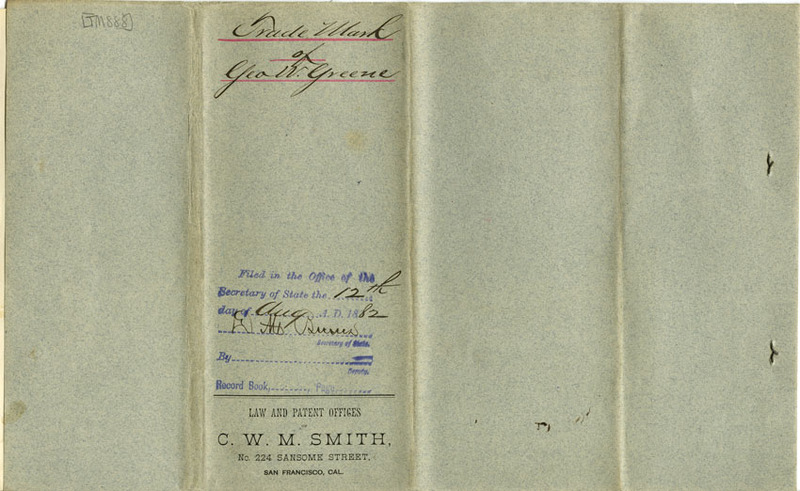 [TM888]
Trade Mark
of
Geo W. Greene
Filed in the Office of the
Secretary of State the 12th
day of Aug A. D. 1882
D. M. Burns
Secretary of State.
By
Deputy.
Record Book, Page
LAW AND PATENT OFFICES
C. W. M. SMITH,
No. 224 SANSOME STREET,
SAN FRANCISCO, CAL.